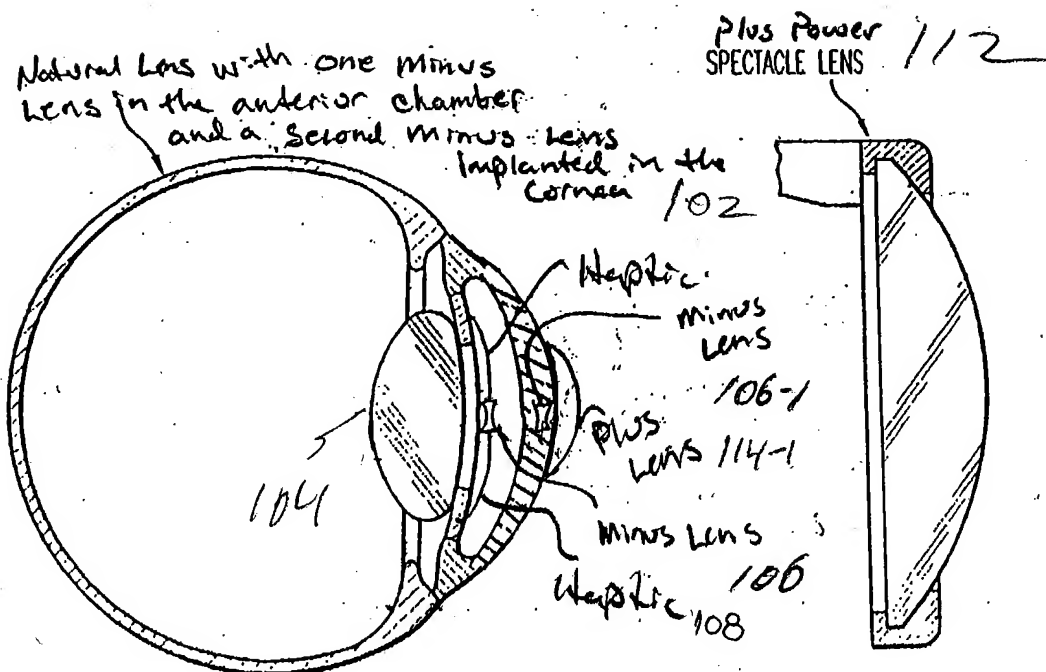 Natural Lens with one minus
Lens in the anterior chamber
and a second minus Lens
implanted in the
Cornea 102
Plus Power 112
SPECTACLE LENS
Haptic
minus
Lens
106-1
plus
Lens 114-1
104
Minus Lens
106
Haptic 108